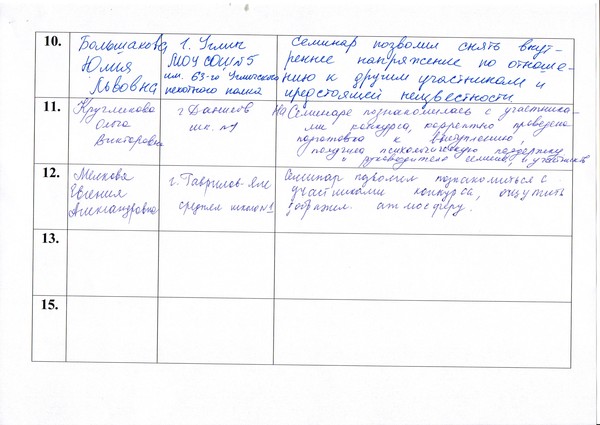 10.
Большакова
Юлия
Львовна
г. Углич
МОУ СОШ №5
им. 63-го Угличского
пехотного полка
Семинар позволил снять внут-
реннее напряжение по отноше-
нию к другим участникам и
предстоящей неизвестности
11.
Кругликова
Ольга
Викторовна
г Данилов
шк. №1
На Семинаре познакомилась с участника-
ми конкурса, корректно проведена
подготовка к выступлению,
получила психологическую поддержку
и руководителей семинара, и участников
12.
Мелкова
Евгения
Александровна
г. Гаврилов-Ям
средняя школа №1
Семинар позволил познакомиться с
участниками конкурса, ощутить
атмосферу.
13.
15.